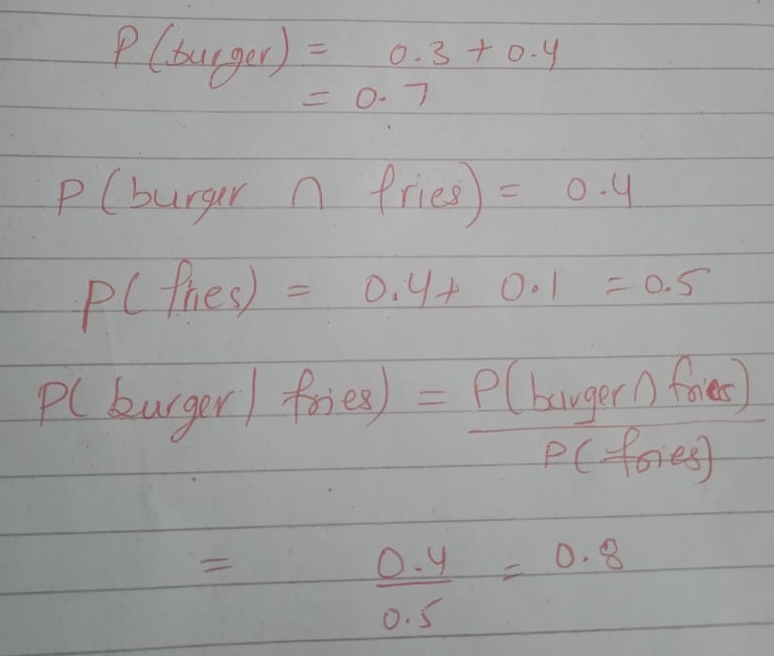 P(burger) = 0.3 + 0.4
= 0.7
P(burger ∩ fries) = 0.4
P(fries) = 0.4+ 0.1 = 0.5
P(burger | fries) = P(burger ∩ fries)
P(fries)
= 0.4 = 0.8
0.5